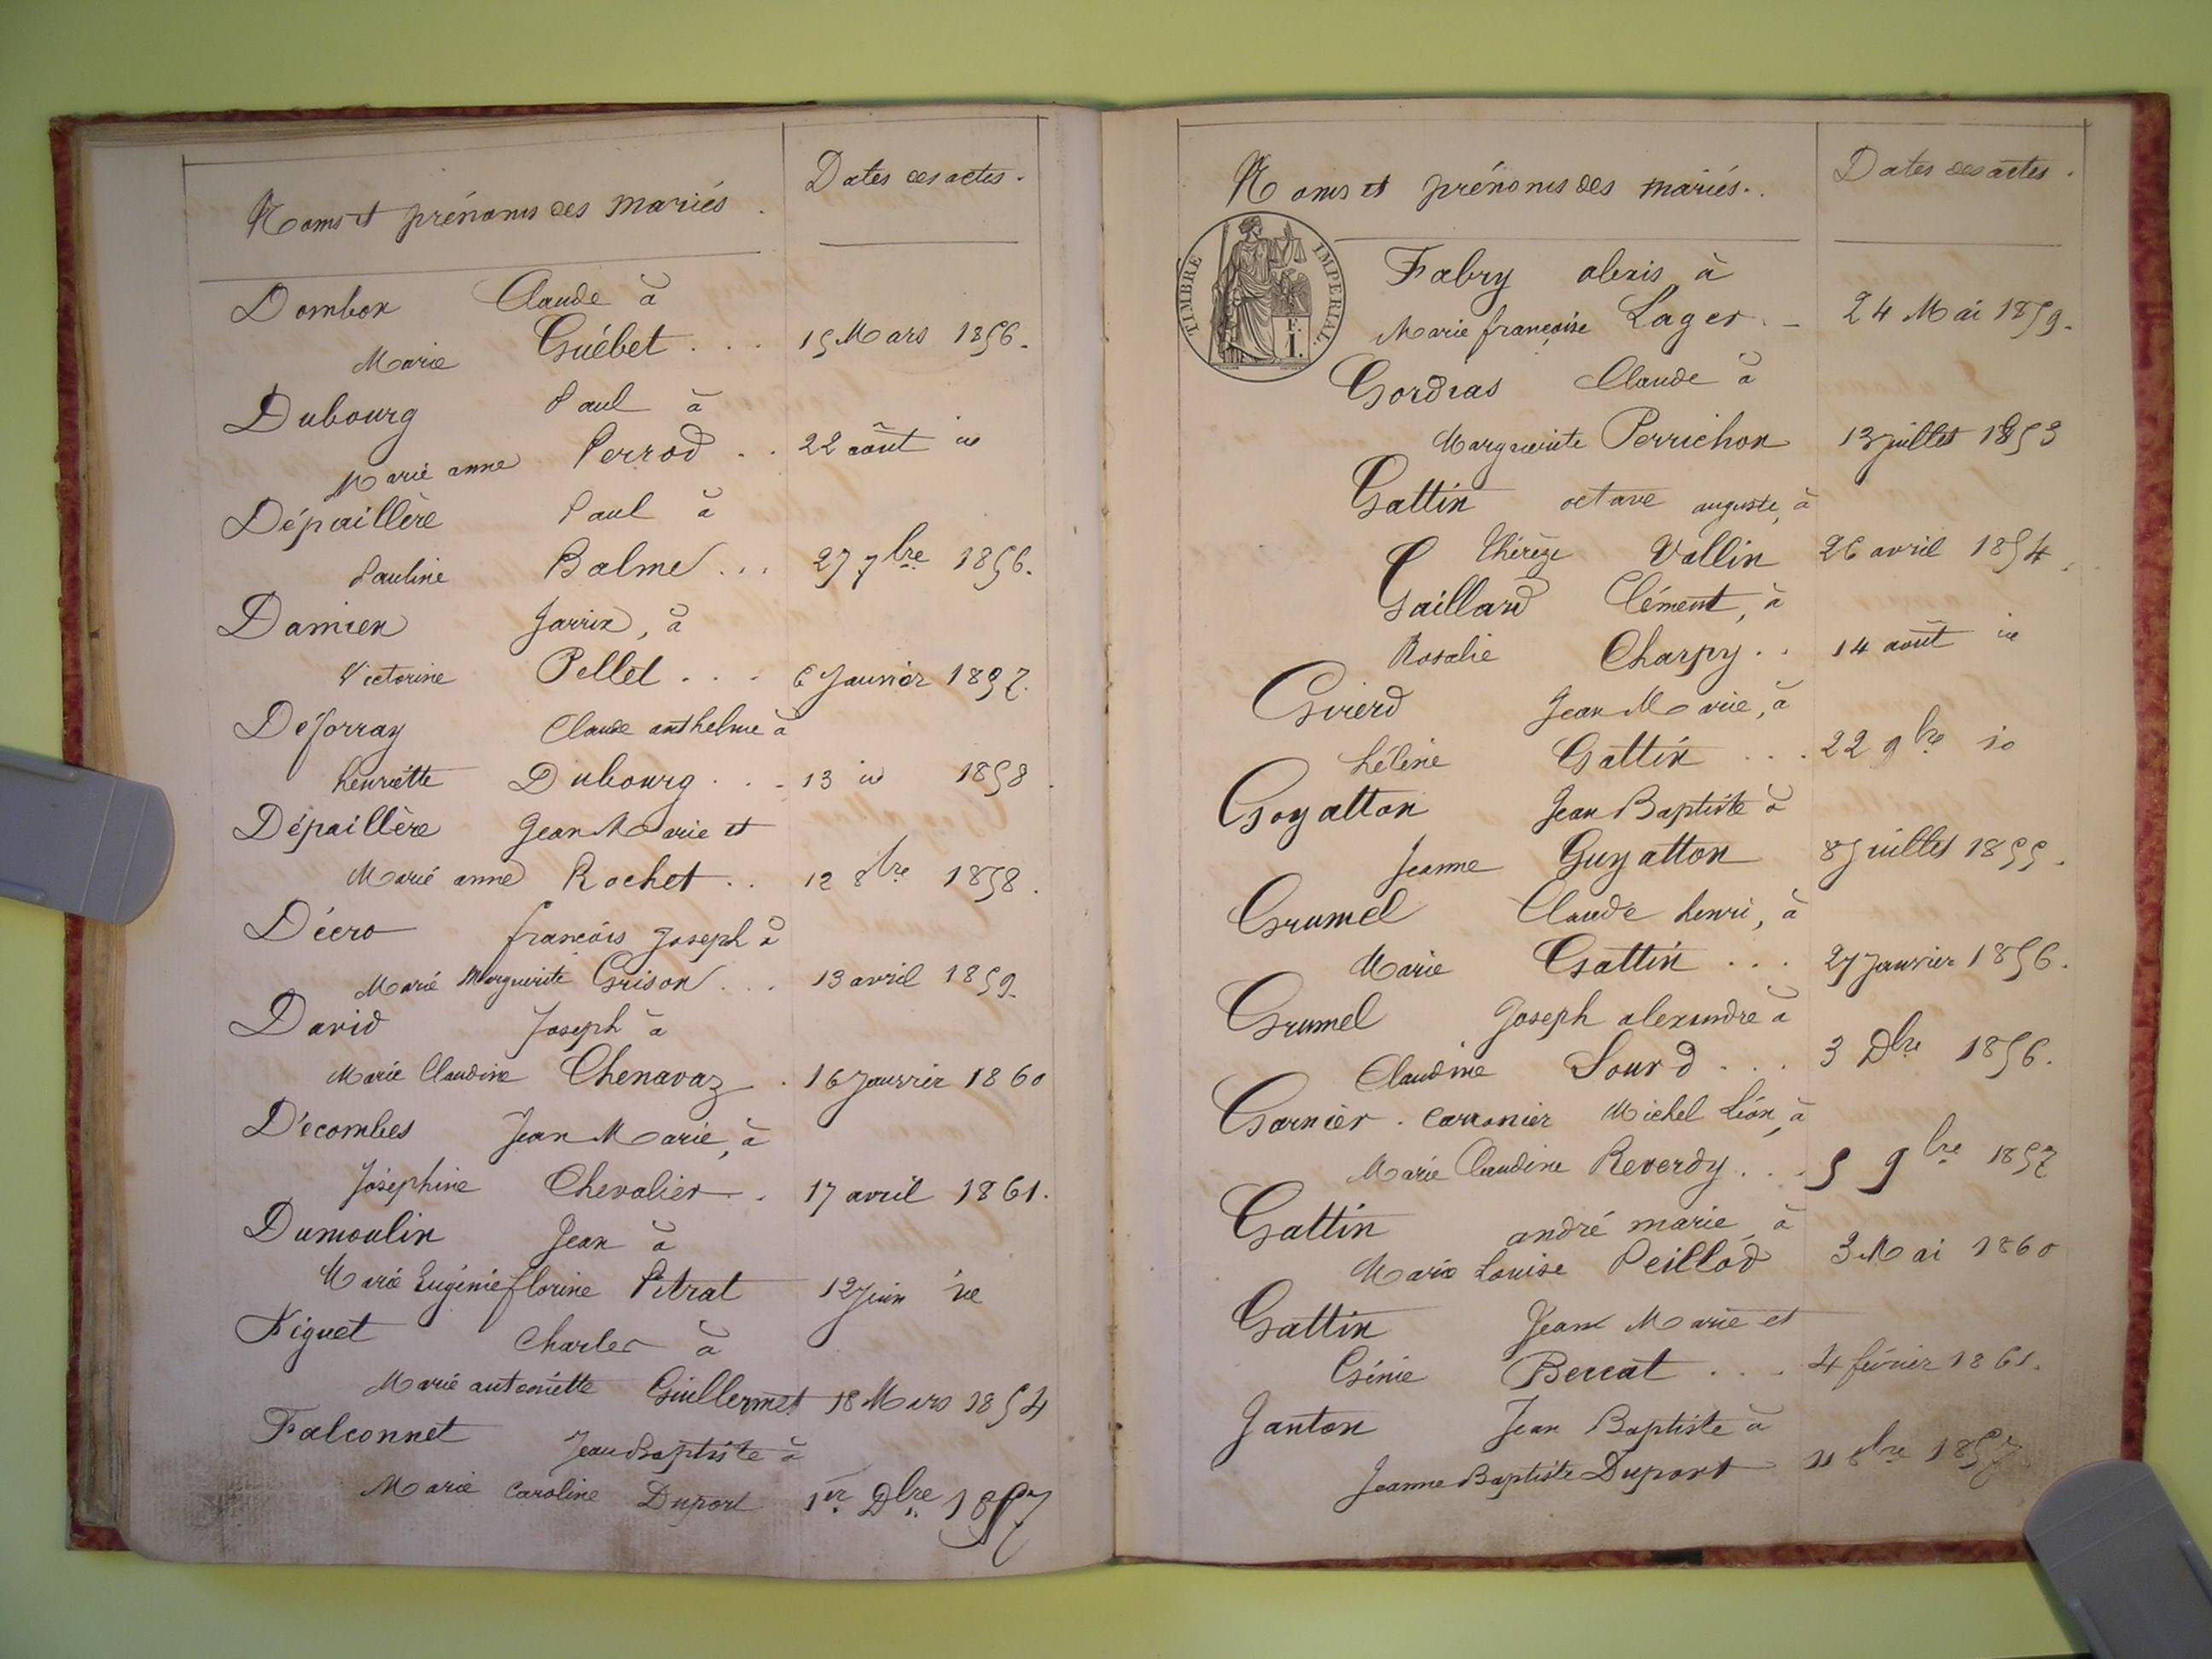 Noms et prénoms des mariés.
Dates des actes.
Dombox Claude à
Marie Guébet . . . 15 Mars 1856.
Dubourg Paul à
Marie anne Perrod . . 22 août id
Dépaillère Paul à
Pauline Balme . . . 27 7bre 1856.
Damien Jarrix, à
Victorine Pellet . . . 6 Janvier 1857.
Déforray Claude anthelme à
henriette Dubourg . . . 13 id 1858.
Dépaillère Jean Marie et
Marie anne Rochet . . 12 8bre 1858.
Décro françois Joseph à
Marie Marguerite Grison . . . 13 avril 1859.
David Joseph à
Marie Claudine Chenavaz . 16 Janvier 1860
Décombes Jean Marie, à
Joséphine Chevalier . 17 avril 1861.
Dumoulin Jean à
Marie Eugénie florine Pitrat 12 Juin id
Figuet Charles à
Marie antoniette Guillermet 18 Mars 1854
Falconnet Jean Baptiste à
Marie Caroline Duport 1er Dbre 1857
Noms et prénoms des mariés.
Dates des actes.
TIMBRE IMPERIAL.
Fabry alexis à
Marie françoise Lager . - 24 Mai 1859.
Gordias Claude à
Marguerite Perrichon 13 juillet 1853
Gattin octave auguste, à
Thérèze Vallin 26 avril 1854.
Gaillard Clément, à
Rosalie Charpy . . 14 août id
Girerd Jean Marie, à
hélène Gattin . . . 22 9bre id
Goyatton Jean Baptiste à
Jeanne Guyatton 8 Juillet 1855.
Grumel Claude henri, à
Marie Gattin . . . 27 Janvier 1856.
Grumel Joseph alexandre à
Claudine Sourd . . . 3 Dbre 1856.
Garnier . Michel Léon, à
Marie Claudine Reverdy . . . 5 9bre 1857
Gattin andré marie, à
Marie Louise Peillod 3 Mai 1860
Gattin Jean Marie et
Génie Bercat . . . 4 février 1861.
Janton Jean Baptiste à
Jeanne Baptiste Duport 11 8bre 1857